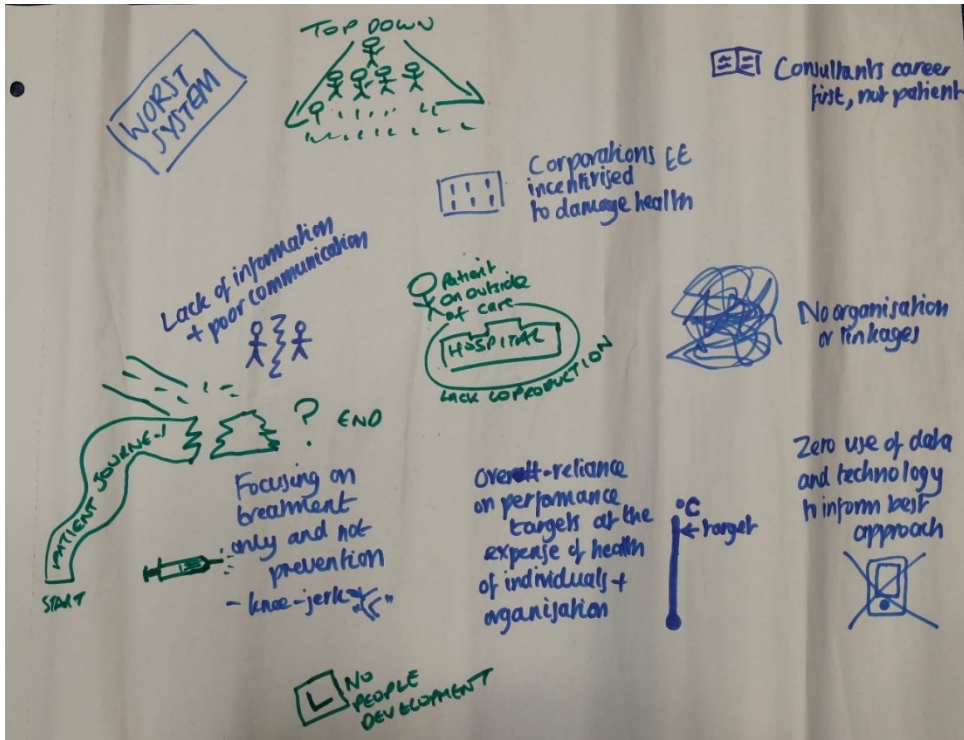 WORST
SYSTEM
TOP DOWN
Consultants career
first, not patient
Corporations ££
incentivised
to damage health
Lack of information
+ poor communication
Patient
on outside
of care
HOSPITAL
LACK COPRODUCTION
No organisation
or linkages
PATIENT JOURNEY
START
? END
Focusing on
treatment
only and not
prevention
- knee-jerk
Over-reliance
on performance
targets at the
expense of health
of individuals +
organisation
°C
target
Zero use of data
and technology
to inform best
approach
L
NO
PEOPLE
DEVELOPMENT